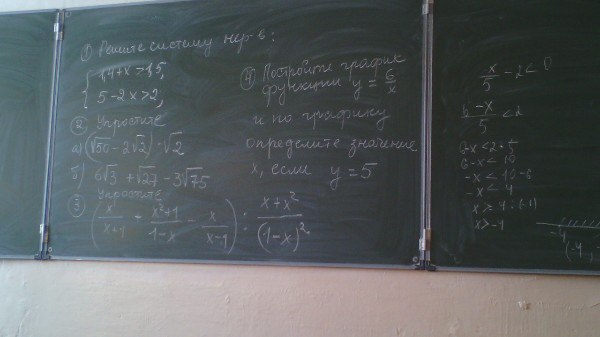 ① Решите систему нер-в:
{ 14+x>15,
5-2x>2,
② Упростите
а) (√50 - 2√2)·√2
б) 6√3 + √27 - 3√75
③ Упростите
(x/(x+1) + (x²+1)/(1-x) - x/(x-1)) : (x+x²)/(1-x)²
④ Постройте график
функции y = 6/x
и по графику
определите значение
x, если y = 5
x/5 - 2 < 0
6-x/5 < 2
6-x < 2·5
6-x < 10
-x < 10-6
-x < 4
x > 4:(-1)
x > -4
-4
(-4